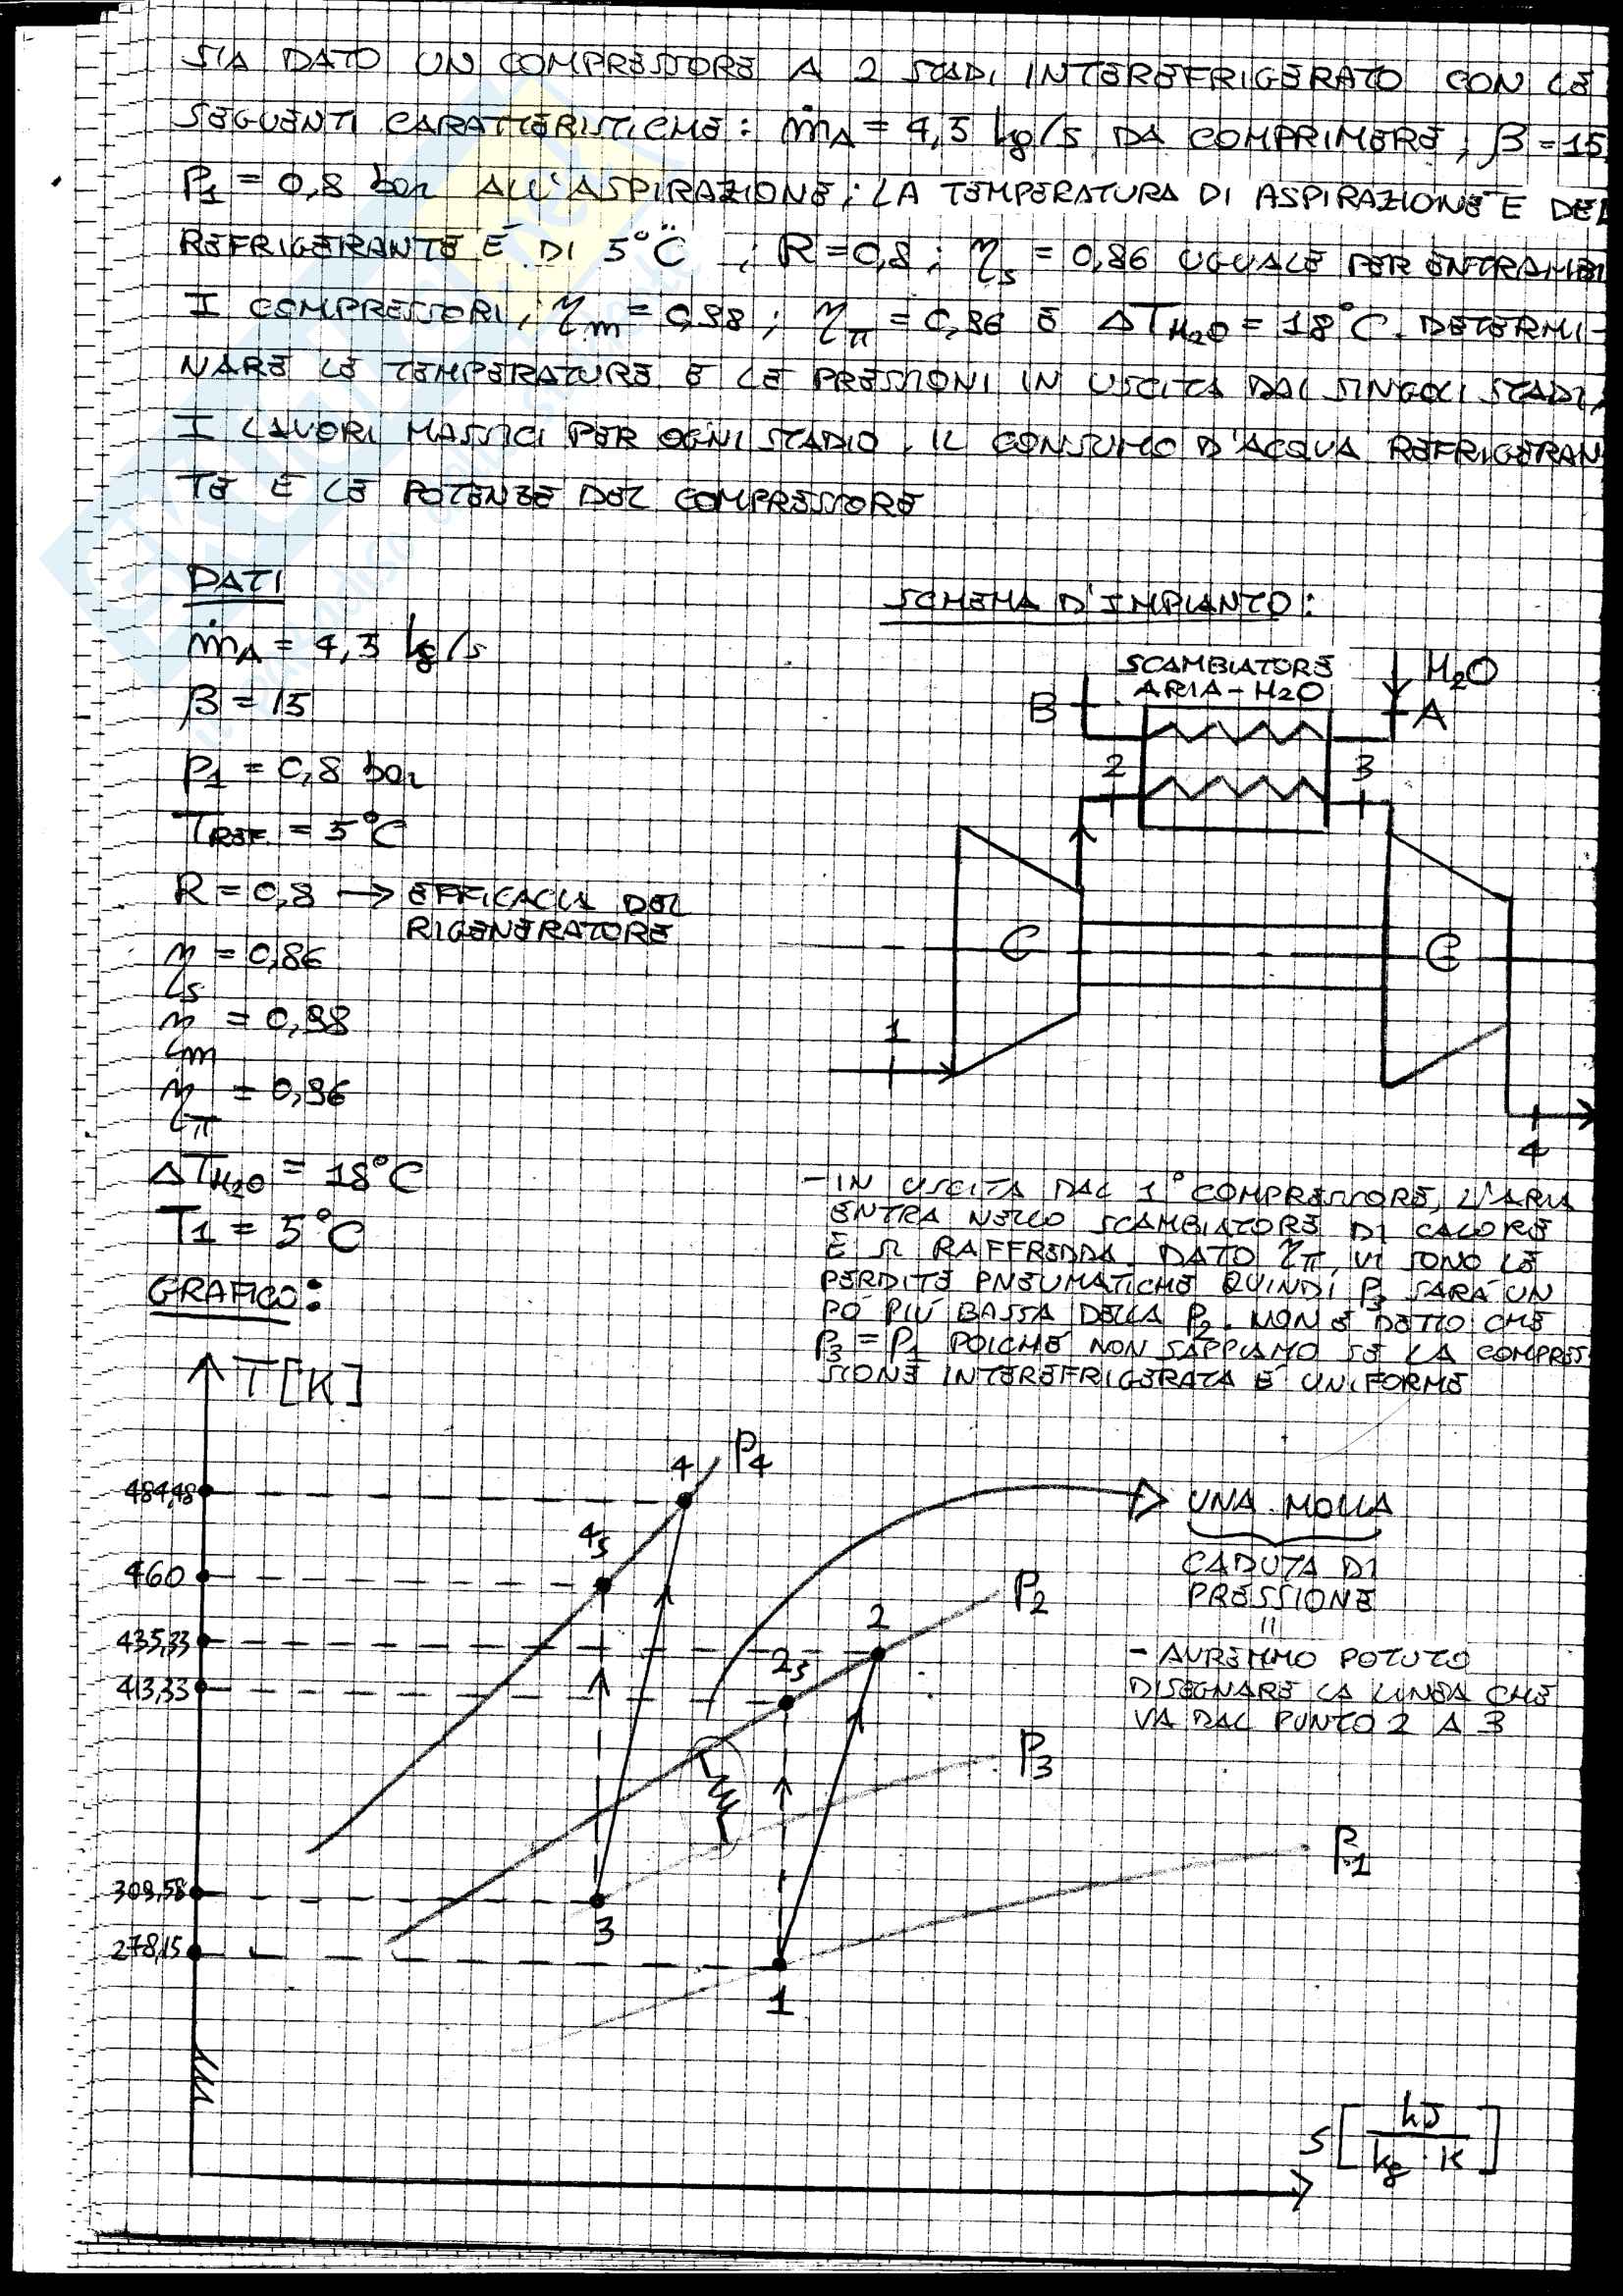 SIA DATO UN COMPRESSORE A 2 STADI INTEREFRIGERATO CON LE
SEGUENTI CARATTERISTICHE: ṁA = 4,5 kg/s DA COMPRIMERE; β=15
P1 = 0,8 bar ALL'ASPIRAZIONE; LA TEMPERATURA DI ASPIRAZIONE E DEL
REFRIGERANTE É DI 5°C ; R=0,8; ηs = 0,86 UGUALE PER ENTRAMBI
I COMPRESSORI; ηm = 0,98; ηπ = 0,96 E ΔTH2O = 18°C. DETERMI-
NARE LE TEMPERATURE E LE PRESSIONI IN USCITA DAI SINGOLI STADI,
I LAVORI MASSICI PER OGNI STADIO, IL CONSUMO D'ACQUA REFRIGERAN
TE E LE POTENZE DEL COMPRESSORE
DATI
ṁA = 4,5 kg/s
β = 15
P1 = 0,8 bar
TREF. = 5°C
R = 0,8 → EFFICACIA DEL
RIGENERATORE
ηs = 0,86
ηm = 0,98
ηπ = 0,96
ΔTH2O = 18°C
T1 = 5°C
SCHEMA D'IMPIANTO:
SCAMBIATORE
ARIA-H2O
H2O
B
A
2
3
C
C
1
4
- IN USCITA DAL 1° COMPRESSORE, L'ARIA
ENTRA NELLO SCAMBIATORE DI CALORE
E SI RAFFREDDA. DATO ηπ, VI SONO LE
PERDITE PNEUMATICHE QUINDI P3 SARÁ UN
PO PIÚ BASSA DELLA P2. NON É DETTO CHE
P3 = P1 POICHÉ NON SAPPIAMO SE LA COMPRES
SIONE INTEREFRIGERATA É UNIFORME
GRAFICO:
T[K]
484,48
460
435,33
413,33
309,58
278,15
4
P4
4s
2
2s
P2
P3
P1
3
1
UNA MOLLA
CADUTA DI
PRESSIONE
=
- AVREMMO POTUTO
DISEGNARE LA LINEA CHE
VA DAL PUNTO 2 A 3
S [kJ / kg·K]